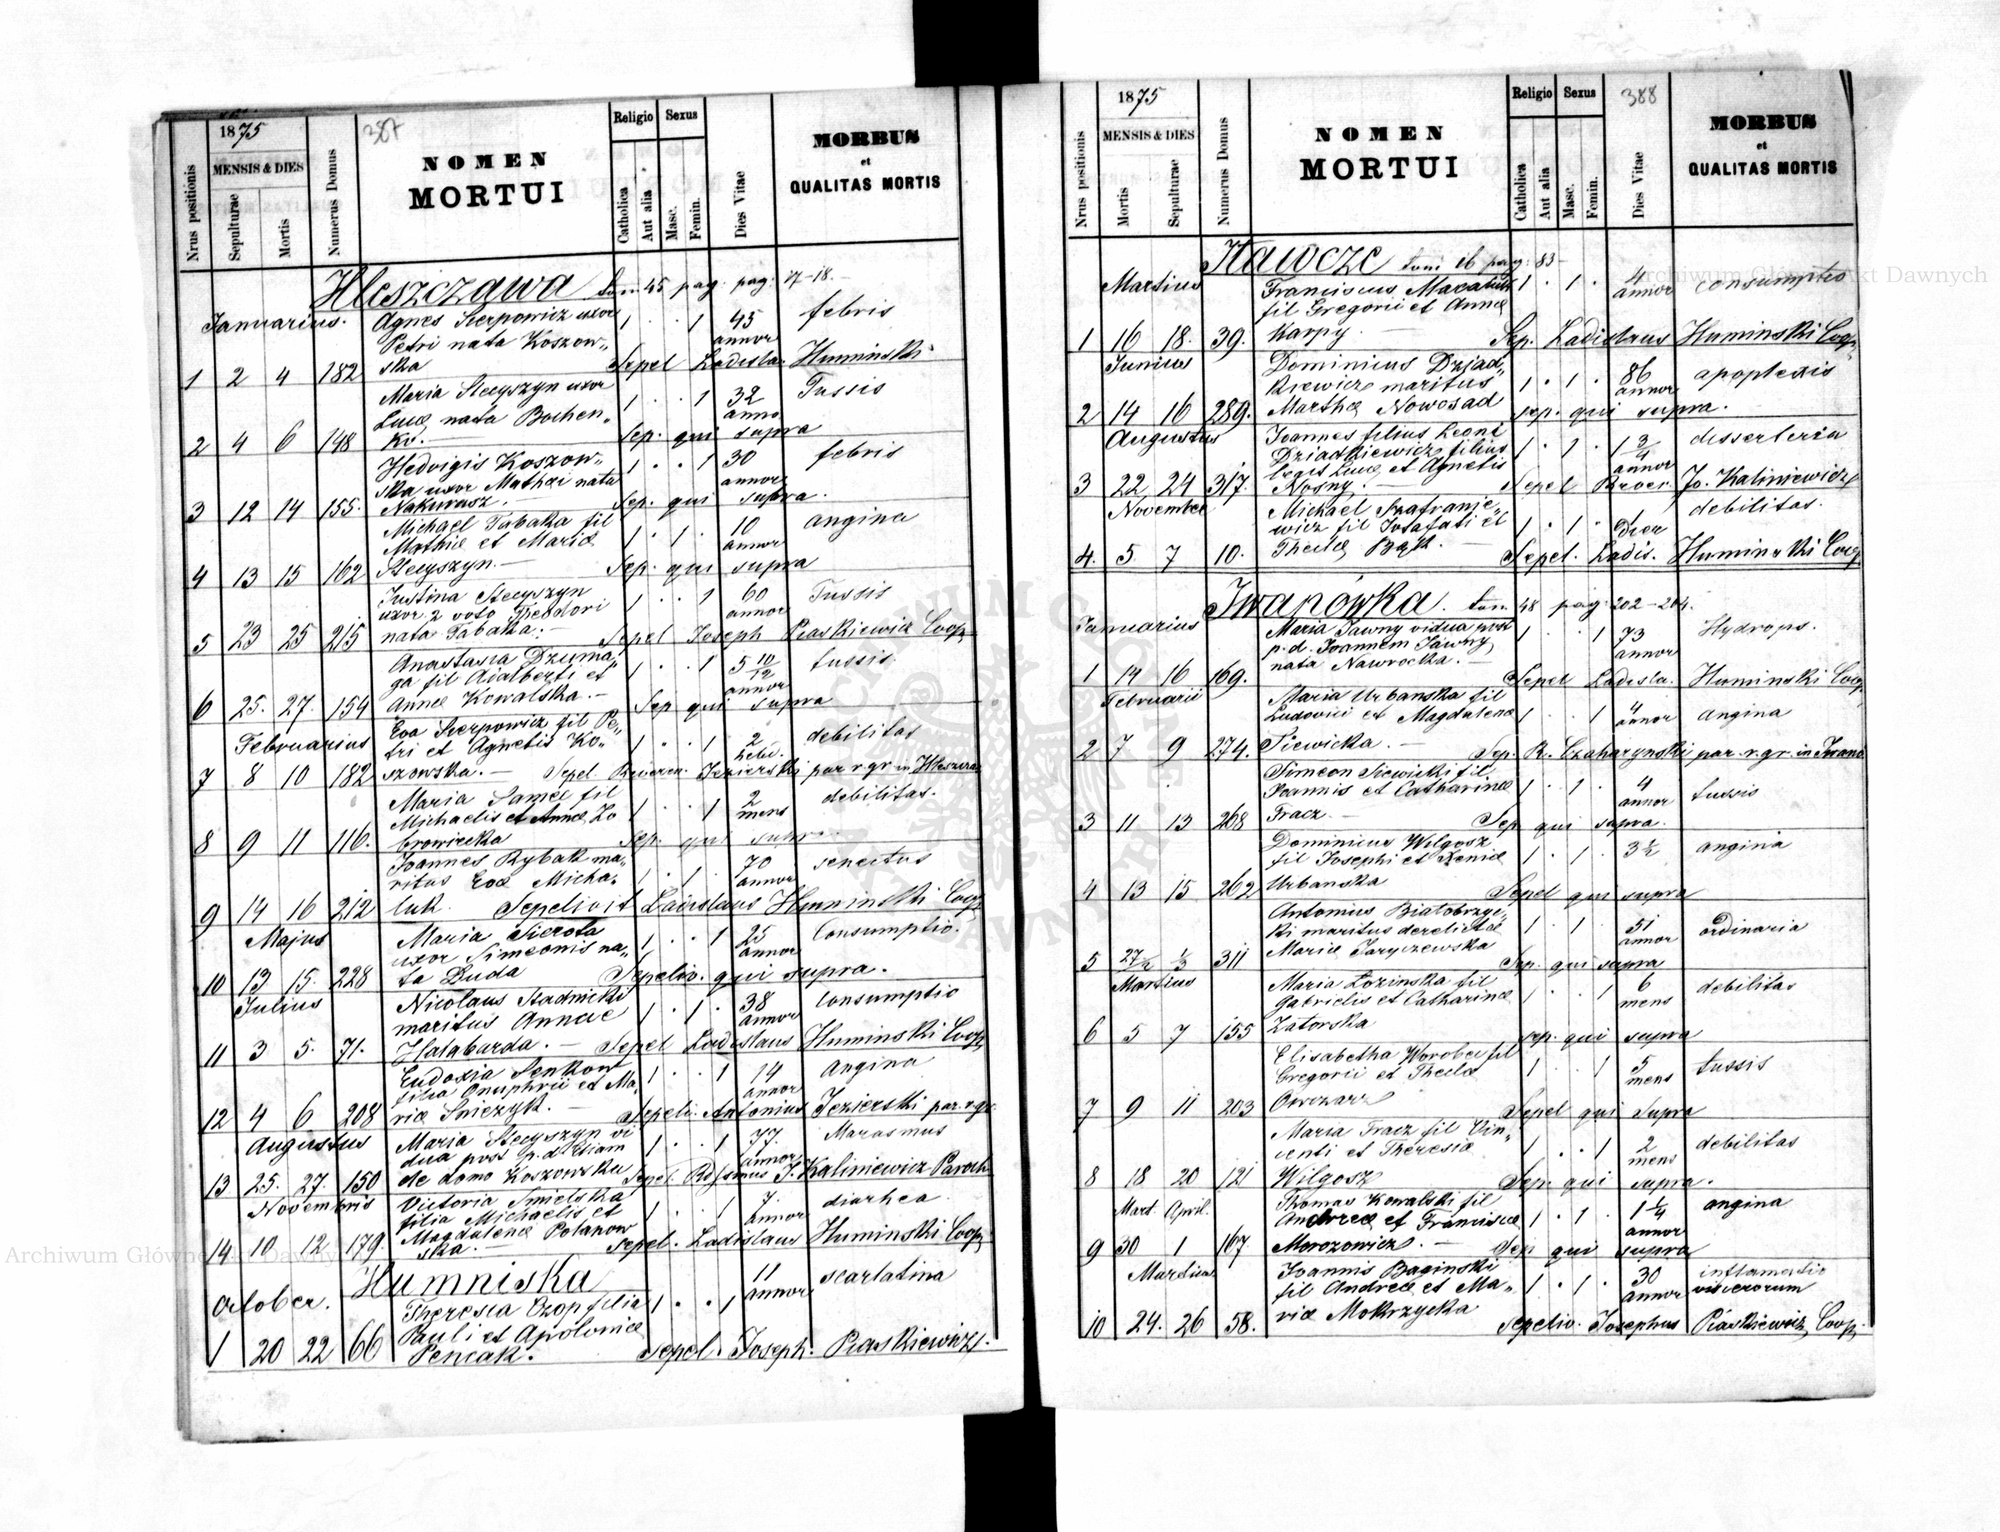 1875
387
Nrus positionis
MENSIS & DIES
Sepulturae
Mortis
Numerus Domus
NOMEN
MORTUI
Religio
Catholica
Aut alia
Sexus
Masc.
Femin.
Dies Vitae
MORBUS
et
QUALITAS MORTIS
Hleszczawa tom 45 pag: pag: 17-18.
Januarius. Agnes Sierpowicz uxor 1 1 45 febris
Petri nata Koszow„ annor
1 2 4 182 ska Sepel Ladisla. Huminski
Maria Stecyszyn uxor 1 1 32 Tussis
Lucæ nata Bochen„ anno
2 4 6 148 ko. Sep. qui supra
Hedvigis Koszow„ 1 1 30 febris
ska uxor Mathæi nata annor
3 12 14 155. Nakurasz. Sep. qui supra.
Michael Tabaka fil 1 1 10 angina
Mathiæ et Mariæ annor
4 13 15 162 Stecyszyn. Sep. qui supra
Justina Stecyszyn 1 1 60 Tussis
uxor 2 voto Theodori annor
5 23 25 215 nata Tabaka. Sepel Joseph Piaskiewicz Coop.
Anastasia Dzuma„ 1 1 5 10/12 tussis.
ga fil Adalberti et annor
6 25. 27. 154 Annæ Kowalska. Sep qui supra
Eva Sierpowicz fil Pe„ 1 1 2 debilitas
Februarius tri et Agnetis Ko„ hebd.
7 8 10 182 szowska. Sepel Reveren. Jezierski par. r. gr. in Hleszcza
Maria Samæ fil 1 1 2 debilitas.
Michaelis et Annæ Zo mens
8 9 11 116. browiecka Sep. qui supra.
Joannes Rybak ma„ 1 1 70 senectus
ritus Evæ Micha„ annor
9 14 16 212 luk. Sepelivit Ladislaus Huminski Coop
Majus Maria Sierota 1 1 25 Consumptio.
uxor Simeonis na„ annor
10 13 15. 228 ta Duda Sepeliv. qui supra.
Julius Nicolaus Stadnicki 1 1 38 consumptio
maritus Annae annor
11 3 5. 71. Halabarda. Sepel Ladislaus Huminski Coop
Eudoxia Senkow 1 1 14 Angina
filia Onuphrii et Ma„ annor
12 4 6 208 riæ Sniezyk. Sepeli. Antonius Jezierski par. r. gr.
Augustus Maria Stecyszyn vi 1 1 77. Marasmus
dua post p. d. annor
13 25. 27. 150 de domo Koszowska Sepel. J. Kaliniewicz Paroch
Novembris Victoria Smielska 1 1 7. diarhea
filia Michaelis et annor
Magdalenæ Polanow
14 10 12 179. ska. Sepel. Ladislaus Huminski Coop
Humniska
October. Theresia Czop filia 1 1 11 scarlatina
annor
Pauli et Apoloniæ
1 20 22 66 Peniak. Sepel. Joseph. Piaskiewicz.
1875
388
Nrus positionis
MENSIS & DIES
Mortis
Sepulturae
Numerus Domus
NOMEN
MORTUI
Religio
Catholica
Aut alia
Sexus
Masc.
Femin.
Dies Vitae
MORBUS
et
QUALITAS MORTIS
Iławcze tom 16 pag: 83
Martius Franciscus 1 1 4 consumptio
fil Gregorii et Annæ annor
1 16 18. 39. Karpy. Sep. Ladislaus Huminski Coop.
Junius Dominicus Dziad„ 1 1 86 apoplexis
kiewicz maritus annor
2 14 16 289. Marthæ Nowosad sep. qui supra.
Augustus Joannes filius Leoni 1 1 1 3/4 disserteria
Dziadkiewicz filius annor
Lucæ et Agnetis
3 22 24 317. Nosny. Sepel Jo. Kaliniewicz
November Michael Szafranie„ 1 1 debilitas.
wicz fil Josafati et Dier
4. 5 7 10. Theclæ Bąk. Sepel. Ladis. Huminski Coop
Iwanówka. tom. 48 pag: 202-204.
Januarius Maria Jawny vidua post 1 1 73 Hydrops.
p. d. Joannem Jawny annor
1 14 16 169. nata Nawrocka. Sepel Ladisla. Huminski Coop
Februarii Maria Urbanska fil 1 1 4 angina
Ludovici et Magdalenæ annor
2 7 9 274. Siewicka. Sep. R. Czaharynski par. r. gr. in Iwano
Simeon Siewicki fil. 1 1 4 tussis
Joannis et Catharinæ annor
3 11 13 268 Fracz. Sep qui supra.
Dominicus Wilgosz 1 1 3½ angina
fil Josephi et Xeniæ
4 13 15 262 Urbanska Sepel qui supra
Antonius Białobrzyc„ 1 1 51 ordinaria
ki maritus derelictæ annor
5 27/2 1/3 311 Mariæ Jaryczewska Sep. qui supra
Martius Maria Łozinska fil 1 1 6 debilitas
Gabrielis et Catharinæ mens
6 5 7 155 Zatorska sep. qui supra
Elisabetha Worobec fil 1 1 5 tussis
Gregorii et Theclæ mens
7 9 11 203 Owczarz Sepel qui supra
Maria Fracz fil Vin„ 1 1 2 debilitas
centi et Theresiæ mens
8 18 20 121 Wilgosz Sep. qui supra.
Mart. April. Thomas Kowalski fil 1 1 1 1/4 angina
Andreæ et Franciscæ annor
9 30 1 167. Morozowicz. Sep qui supra
Martius Joannis Baginski 1 1 30 inflamatio
fil Andreæ et Ma„ annor viscerorum
10 24. 26 58. riæ Mokrzycka Sepeliv. Josephus Piaskiewicz Coop.
Archiwum Główne Akt Dawnych
Archiwum Główne Akt Dawnych